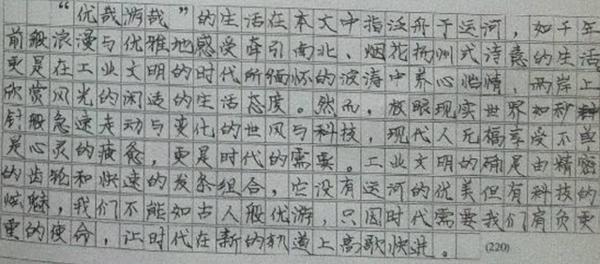 “优哉游哉”的生活在本文中指泛舟于运河,如千年
前般浪漫与优雅地感受牵引南北、烟花扬州式诗意的生活
更是在工业文明的时代所缅怀的波涛中养心怡情,两岸上
欣赏风光的闲适的生活态度。然而,放眼现实世界如秒
针般急速走动与变化的世风与科技,现代人无福享受不单
是心灵的疲惫,更是时代的需要。工业文明的确是由精密
的齿轮和快速的发条组合,它没有运河的优美但有科技的
炫魅,我们不能如古人般优游,只因时代需要我们肩负更
重的使命,让时代在新的轨道上高歌快进。 (220)